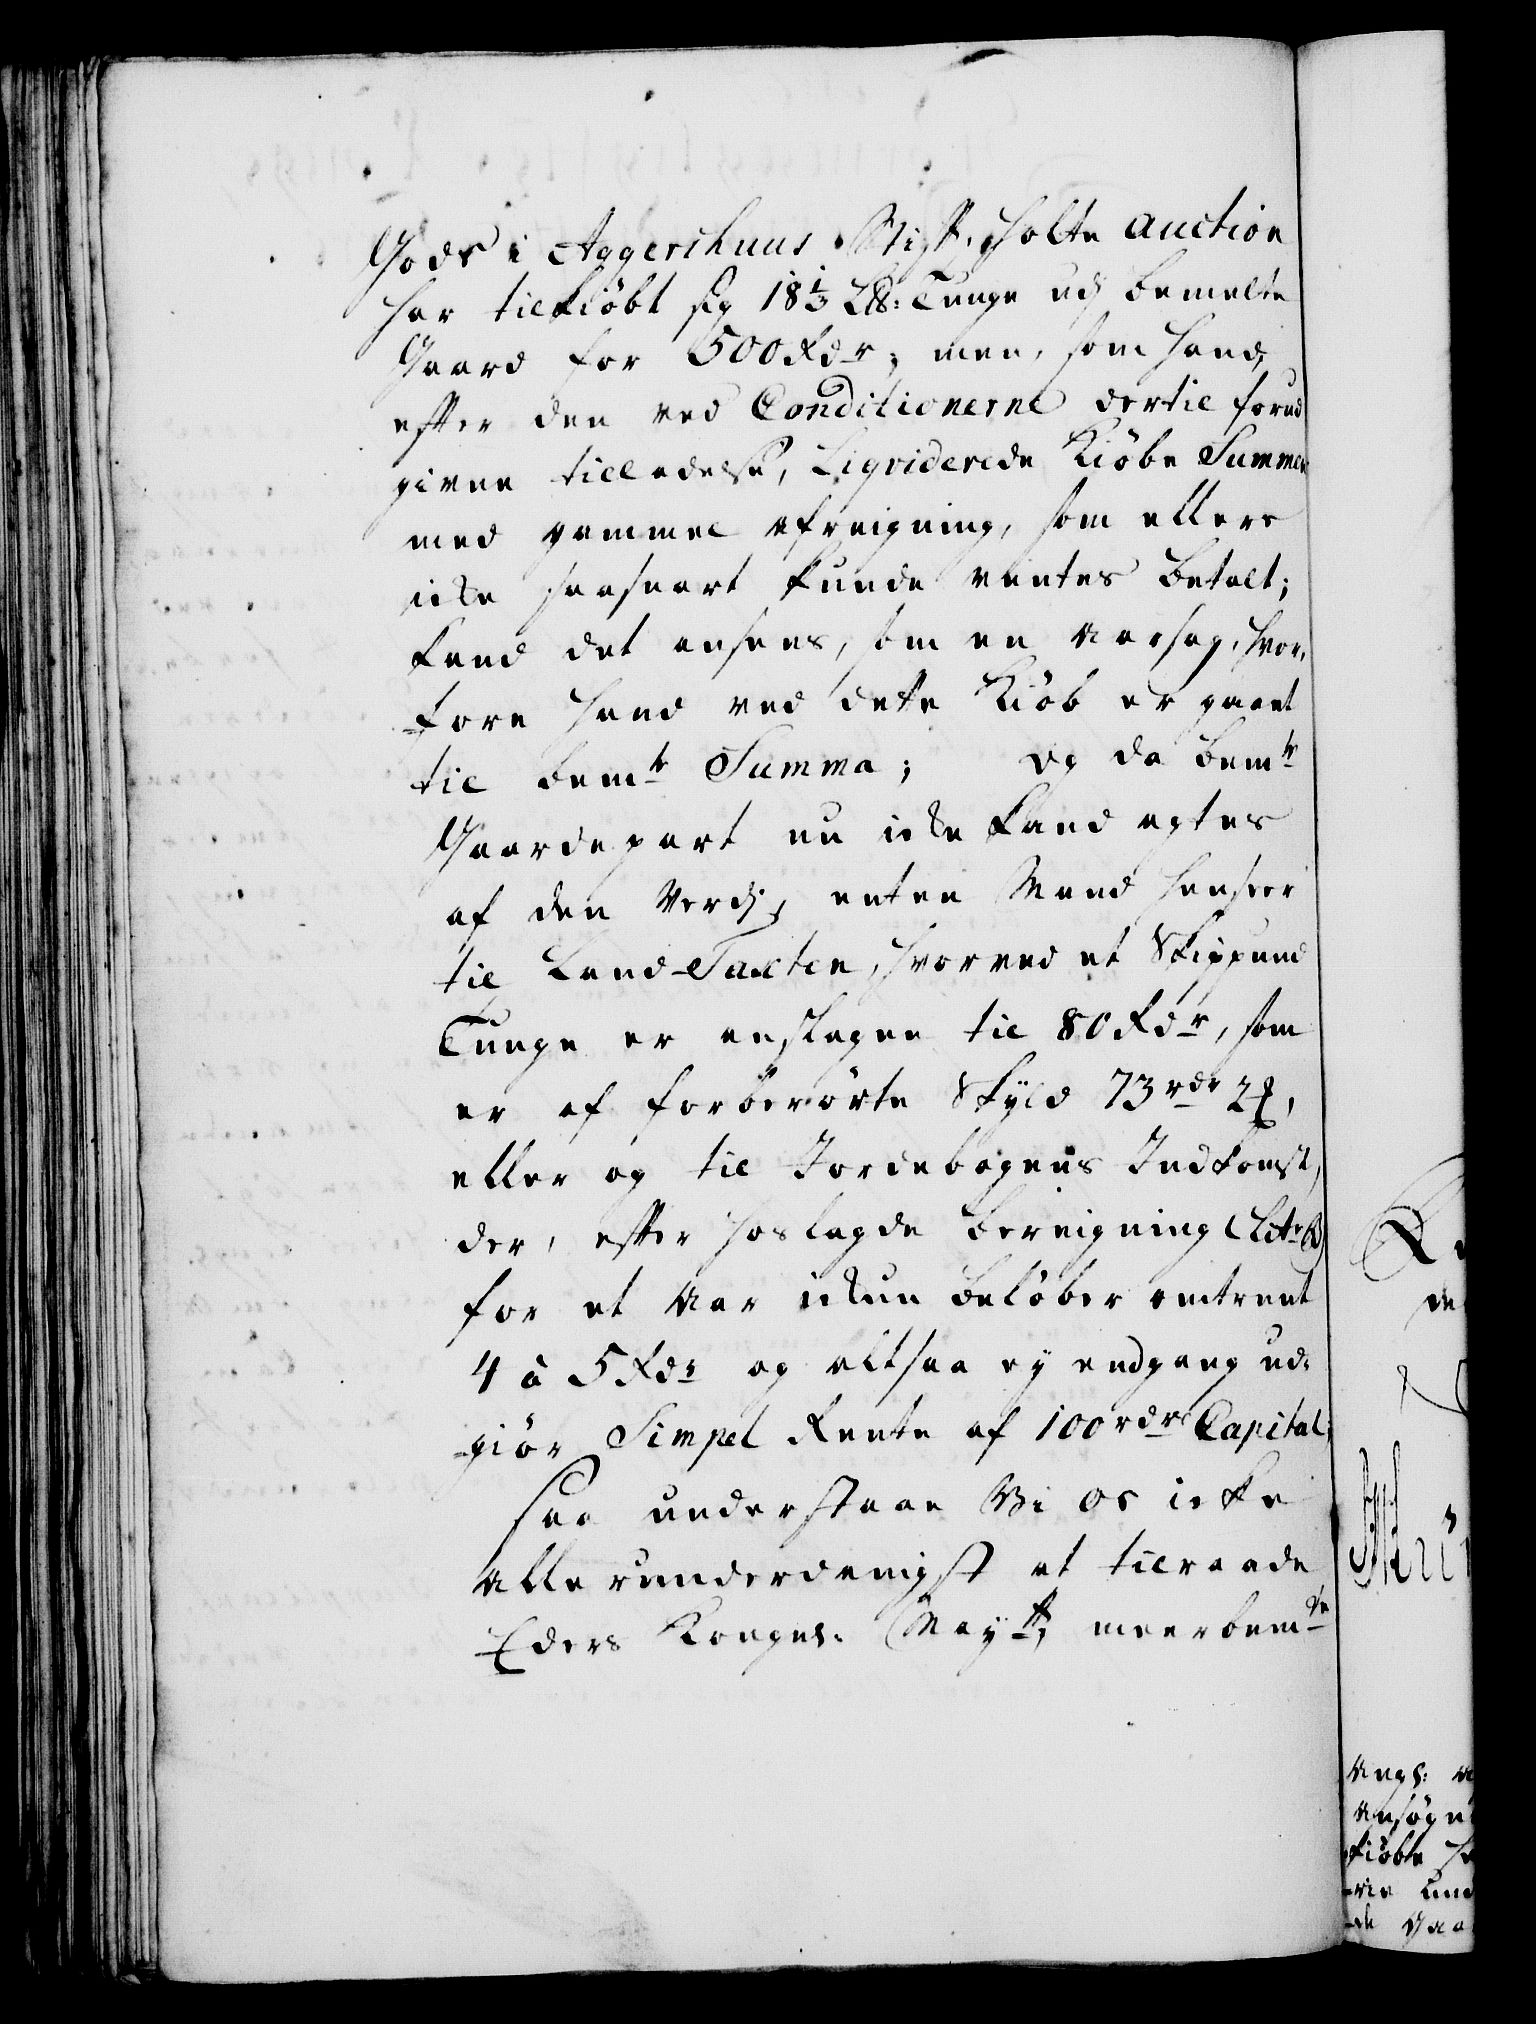 Gods i Aggershuus Stift, holte Auction
har tilkiøbt sig 18 1/3 L℔: Tunge udj bemelte
Gaard for 500 Rdr; men, som hand,
efter den ved Conditionerne dertil forud
given tilladelse, Liqviderede Kiøbe Summen
med gammel afreigning, som ellers
icke saasnart kunde ventes betalt;
kand det ansees, som en Aarsag, hvor,
fore hand ved dette Kiøb er gaaet
til bemte Summa; Og da bemte
Gaardepart nu icke kand agtes
af den Verdj, enten Mand henseer
til Land-Taxten, hvorved et Skippund
Tunge er anslagen til 80 Rdr, som
er af forberørte Skyld 73 rdr 2 ß,
eller og til Jordebogens Indkomst,
der, efter hoslagde bereigning (Litr B)
for et Aar ickun beløber omtrent
4 à 5 Rdr og altsaa ey endgang ud-
giør Simpel Rente af 100 rdrs Capital;
saa understaae Vi os icke
allerunderdanigst at tilraade
Eders Kongel. Mayts, meerbemte
Angl:
Ansøgn
kiøbte